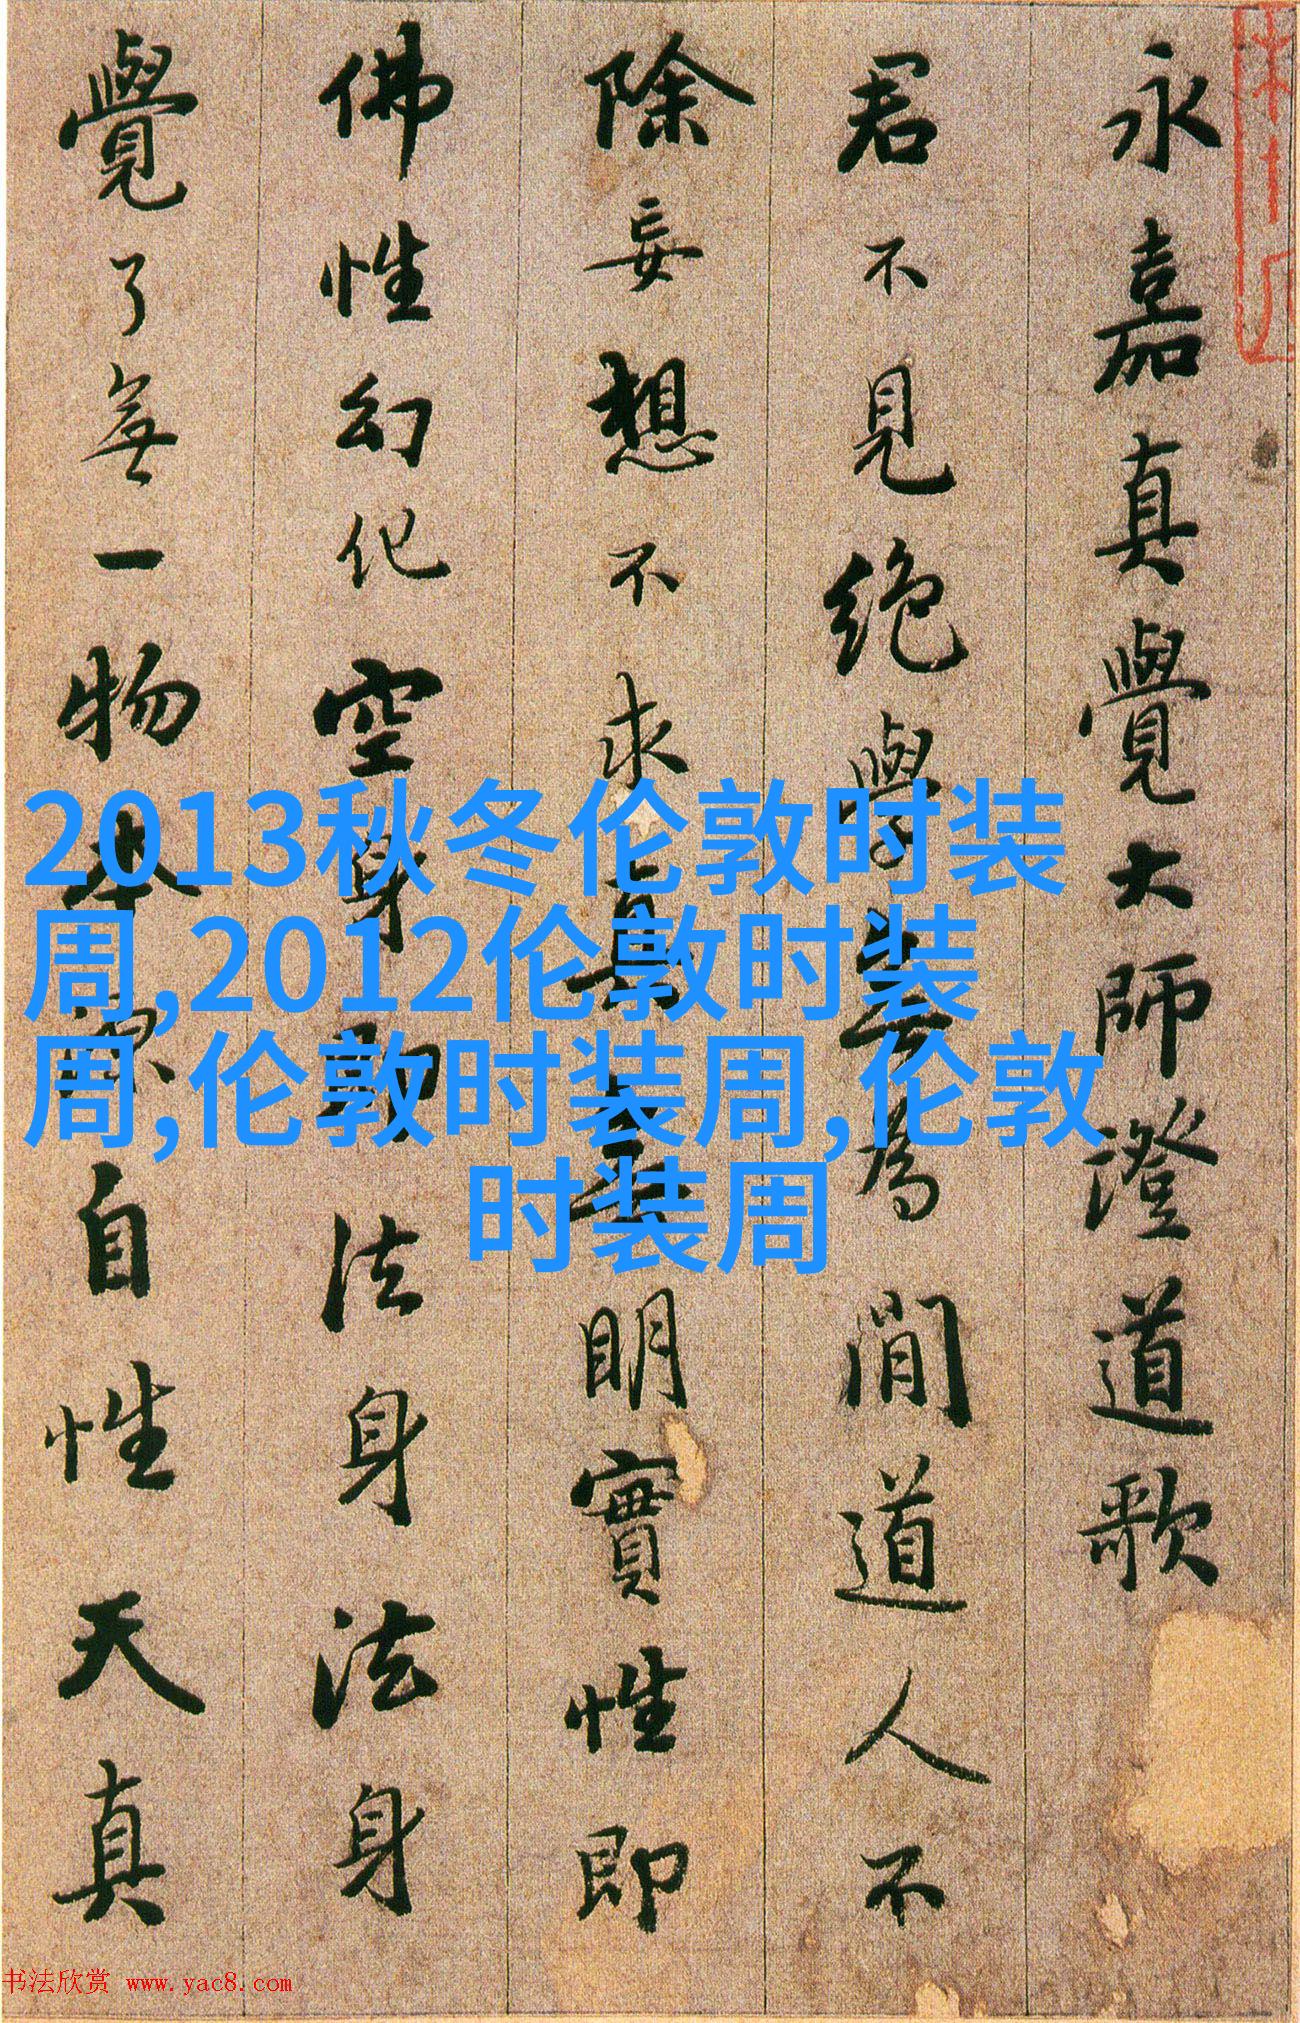 永嘉真覺大師澄道歌
君不見絶學無為閒道人不
除妄想不求真無明實性即
佛性幻化空身即法身法身
覺了無一物本源自性天真
2013秋冬伦敦时装
周,2012伦敦时装
周,伦敦时装周,伦敦
时装周
书法欣赏 www.yac8.com